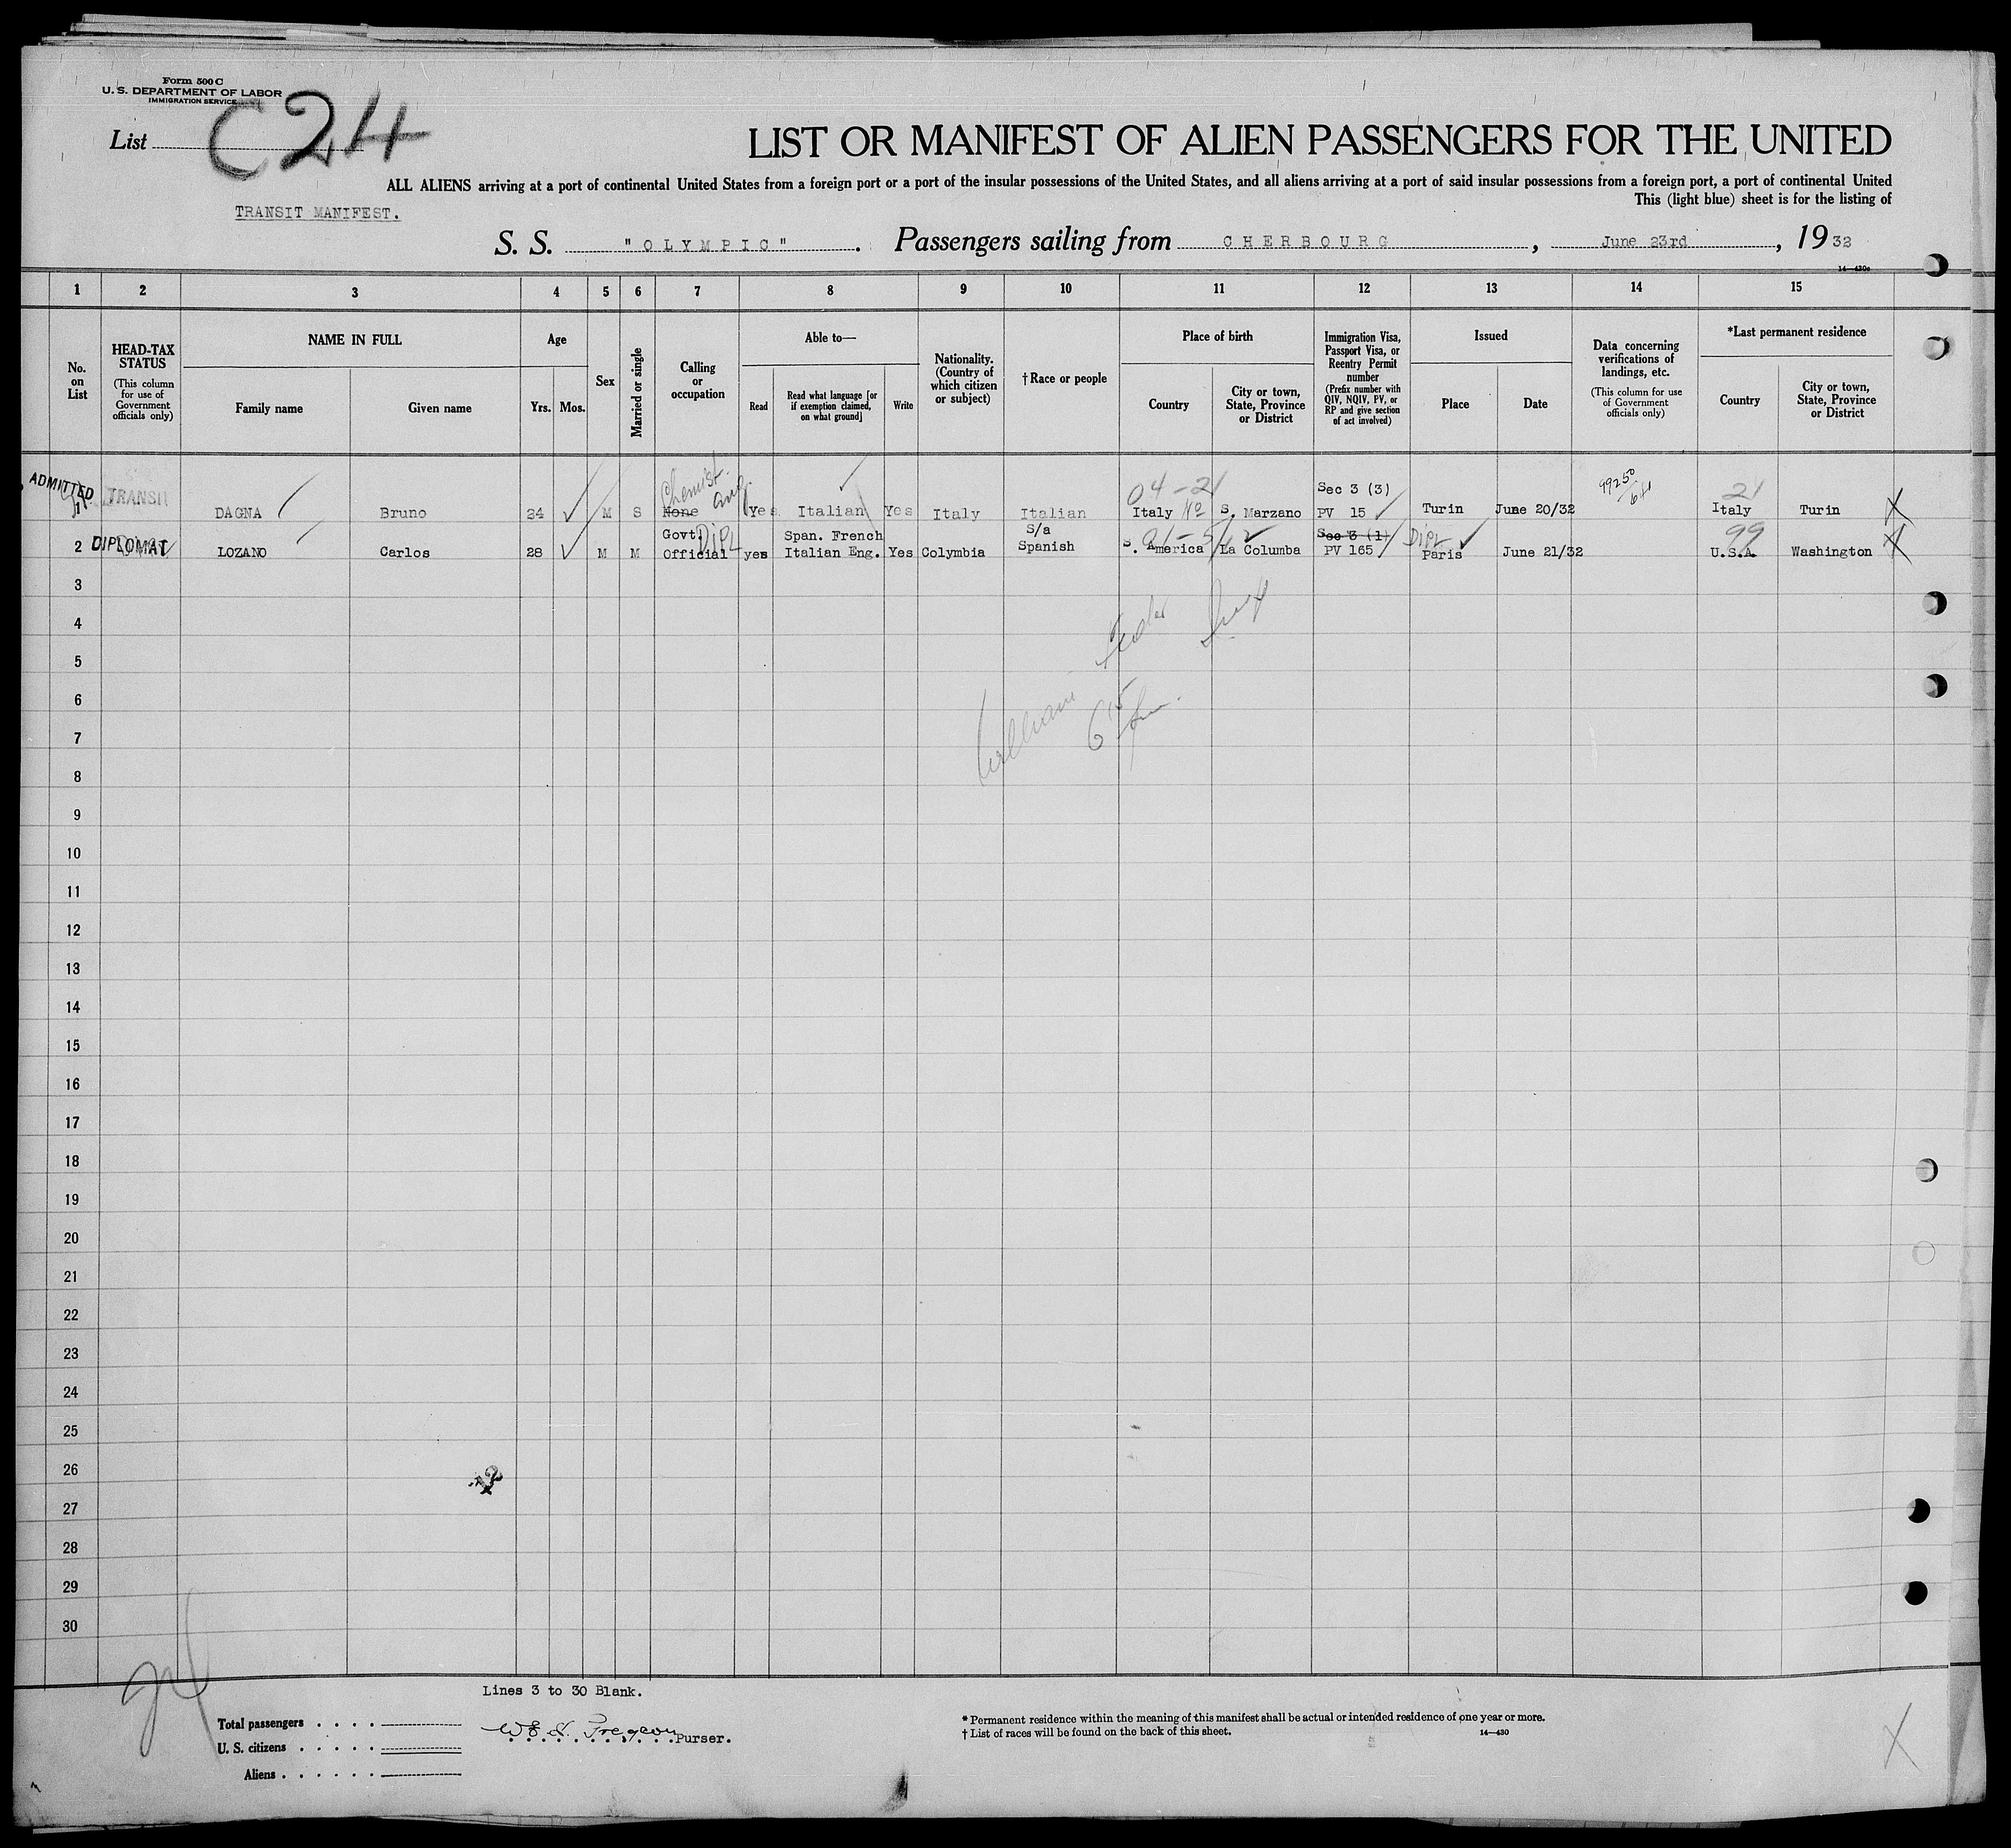 Form 500 C
U. S. DEPARTMENT OF LABOR
IMMIGRATION SERVICE
List C24
LIST OR MANIFEST OF ALIEN PASSENGERS FOR THE UNITED
ALL ALIENS arriving at a port of continental United States from a foreign port or a port of the insular possessions of the United States, and all aliens arriving at a port of said insular possessions from a foreign port, a port of continental United
This (light blue) sheet is for the listing of
TRANSIT MANIFEST.
S. S. "OLYMPIC". Passengers sailing from CHERBOURG, June 23rd, 1932
14—430c
1 2 3 4 5 6 7 8 9 10 11 12 13 14 15
No. on List
HEAD-TAX STATUS (This column for use of Government officials only)
NAME IN FULL
Family name
Given name
Age
Yrs. Mos.
Sex
Married or single
Calling or occupation
Able to—
Read
Read what language [or if exemption claimed, on what ground]
Write
Nationality. (Country of which citizen or subject)
† Race or people
Place of birth
Country
City or town, State, Province or District
Immigration Visa, Passport Visa, or Reentry Permit number (Prefix number with QIV, NQIV, PV, or RP and give section of act involved)
Issued
Place
Date
Data concerning verifications of landings, etc. (This column for use of Government officials only)
*Last permanent residence
Country
City or town, State, Province or District
ADMITTED
Chemist
04-21
Sec 3 (3)
99250
21
1 TRANSIT DAGNA Bruno 24 M S None Yes Italian Yes Italy Italian Italy S. Marzano PV 15 Turin June 20/32 Italy Turin
Govt. DIPL Span. French S/a Sec 3 (1) DIPL 99
2 DIPLOMAT LOZANO Carlos 28 M M Official yes Italian Eng. Yes Colymbia Spanish S. America La Columba PV 165 Paris June 21/32 U.S.A. Washington
3
4
5
6
William
7
8
9
10
11
12
13
14
15
16
17
18
19
20
21
22
23
24
25
26
27
28
29
30
Lines 3 to 30 Blank.
Total passengers
U. S. citizens
Aliens
Purser.
* Permanent residence within the meaning of this manifest shall be actual or intended residence of one year or more.
† List of races will be found on the back of this sheet.
14—430